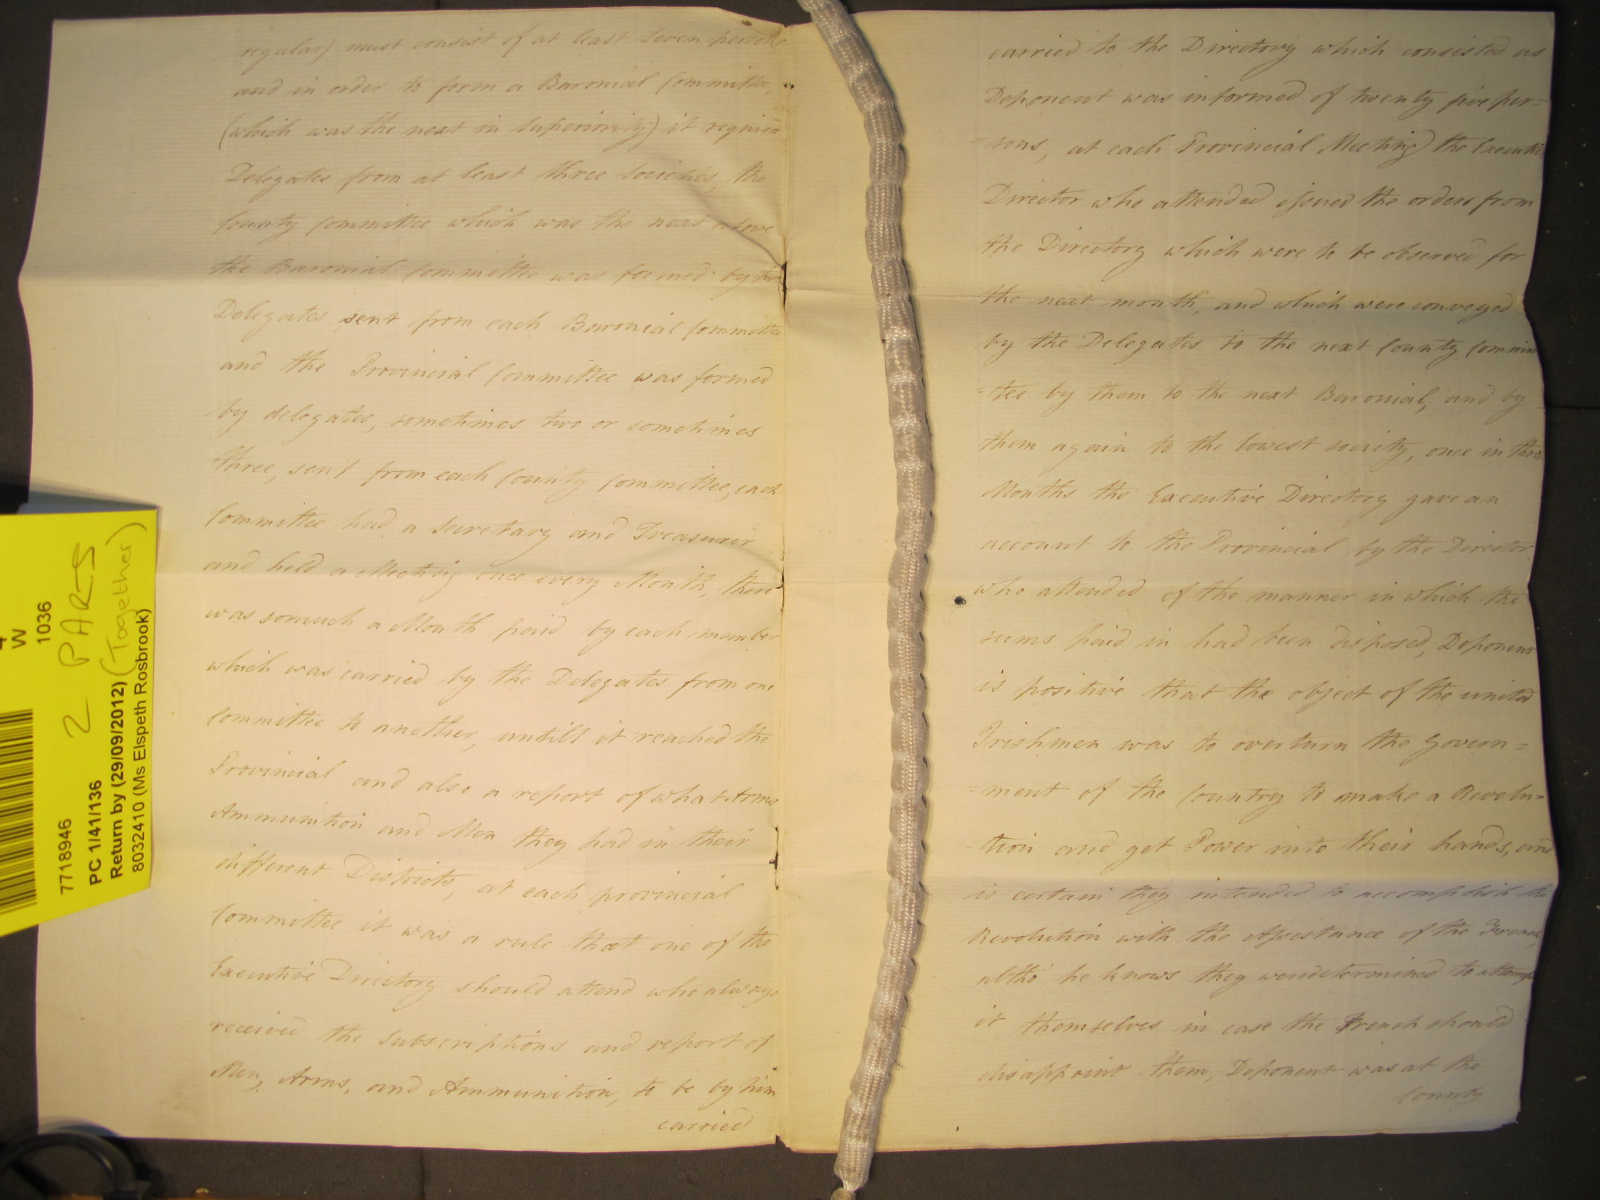 regular) must consist of at least seven persons
and in order to form a Baronial Committee,
(which was the next in Superiority) it required
Delegates from at least three Societies, the
County Committee which was the next above
the Baronial Committee was formed by two
Delegates sent from each Baronial Committee
and the Provincial Committee was formed
by delegates, sometimes two or sometimes
three, sent from each County Committee, each
Committee had a Secretary and Treasurer
and held a Meeting once every Month, there
was somuch a Month paid by each member
which was carried by the Delegates from one
Committee to another, untill it reached the
Provincial and also a report of what Arms
Ammunition and Men they had in their
different Districts, at each provincial
Committee it was a rule that one of the
Executive Directory should attend who always
received the Subscriptions and report of
Men, Arms, and Ammunition, to be by him
carried
carried to the Directory which consisted as
Deponent was informed of twenty five per=
=sons, at each Provincial Meeting the Executive
Director who attended issued the orders from
the Directory which were to be observed for
the next month, and which were conveyed
by the Delegates to the next County Commit
=tee by them to the next Baronial, and by
them again to the lowest society, once in three
Months the Executive Directory gave an
account to the Provincial by the Director
who attended of the manner in which the
sums paid in had been disposed, Deponent
is positive that the object of the united
Irishmen was to overturn the Govern=
=ment of the Country to make a Revolu=
=tion and get Power into their hands, and
is certain they intended to accomplish the
Revolution with the Assistance of the French,
altho' he knows they were determined to attempt
it themselves in case the French should
disappoint them, Deponent was at the
County
W
1036
2 PARTS
(Together)
7718946
PC 1/41/136
Return by (29/09/2012)
8032410 (Ms Elspeth Rosbrook)